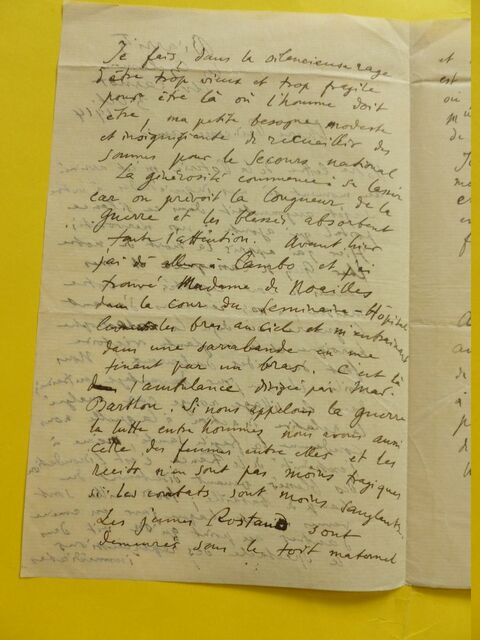 Je fais, dans la silencieuse rage
d'être trop vieux et trop fragile
pour être là où l'homme doit
être, ma petite besogne modeste
et insignifiante de recueillir des
sommes pour le Secours national
La générosité commence à se lasser
car on prévoit la longueur de la
guerre et les blessés absorbent
toute l'attention. Avant hier
j'ai dû aller à Cambo et j'ai
trouvé Madame de Noailles
dans la cour du Séminaire-Hôpital
les bras au ciel et m'entraînant
dans une sarrabande en me
tenant par un bras. C'est là
l'ambulance dirigée par Mad.
Barthou. Si nous appelons la guerre
la lutte entre hommes nous avons aussi
celle des femmes entre elles et les
récits n'en sont pas moins tragiques
si les combats sont moins sanglants.
Les jeunes Rostand sont
demeurés sous le toit maternel
et
est
où
de